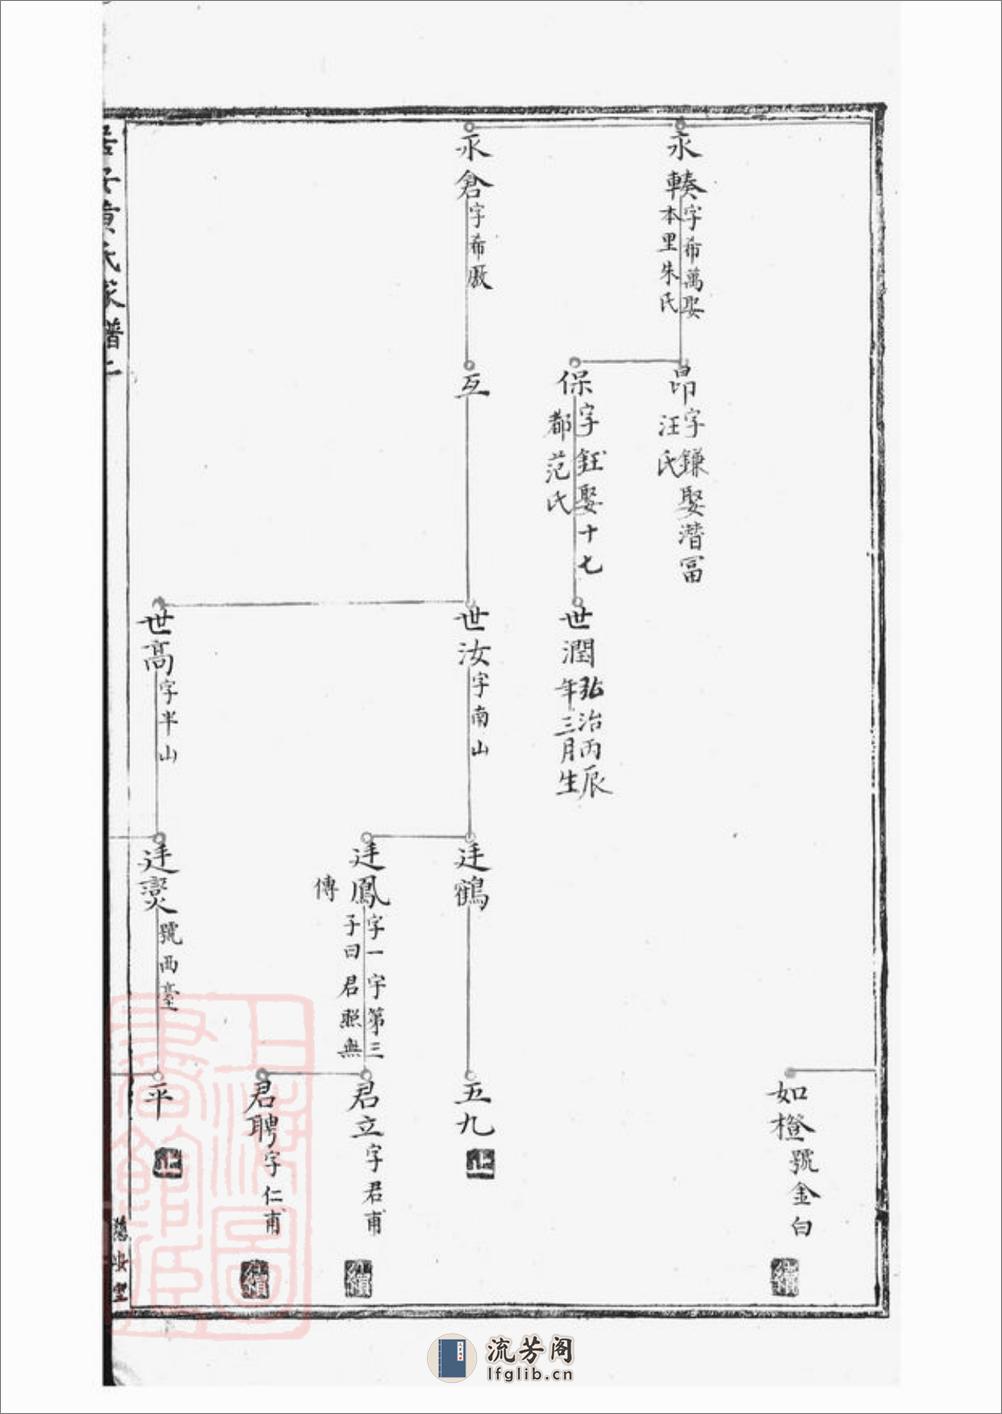 永輳字希萬娶
本里朱氏
昂字鎌娶潛冨
汪氏
如橙號金白
續
保字鈺娶十七
都范氏
世潤弘治丙辰
年三月生
永倉字希廒
互
世汝字南山
廷鶴
五九
止
廷鳳字一宇第三
子曰君熙無
傳
君立字君甫
續
君聘字仁甫
續
世高字半山
廷爕號西臺
平
止
黃氏家譜
上海圖書館藏
流芳阁
lfglib.cn